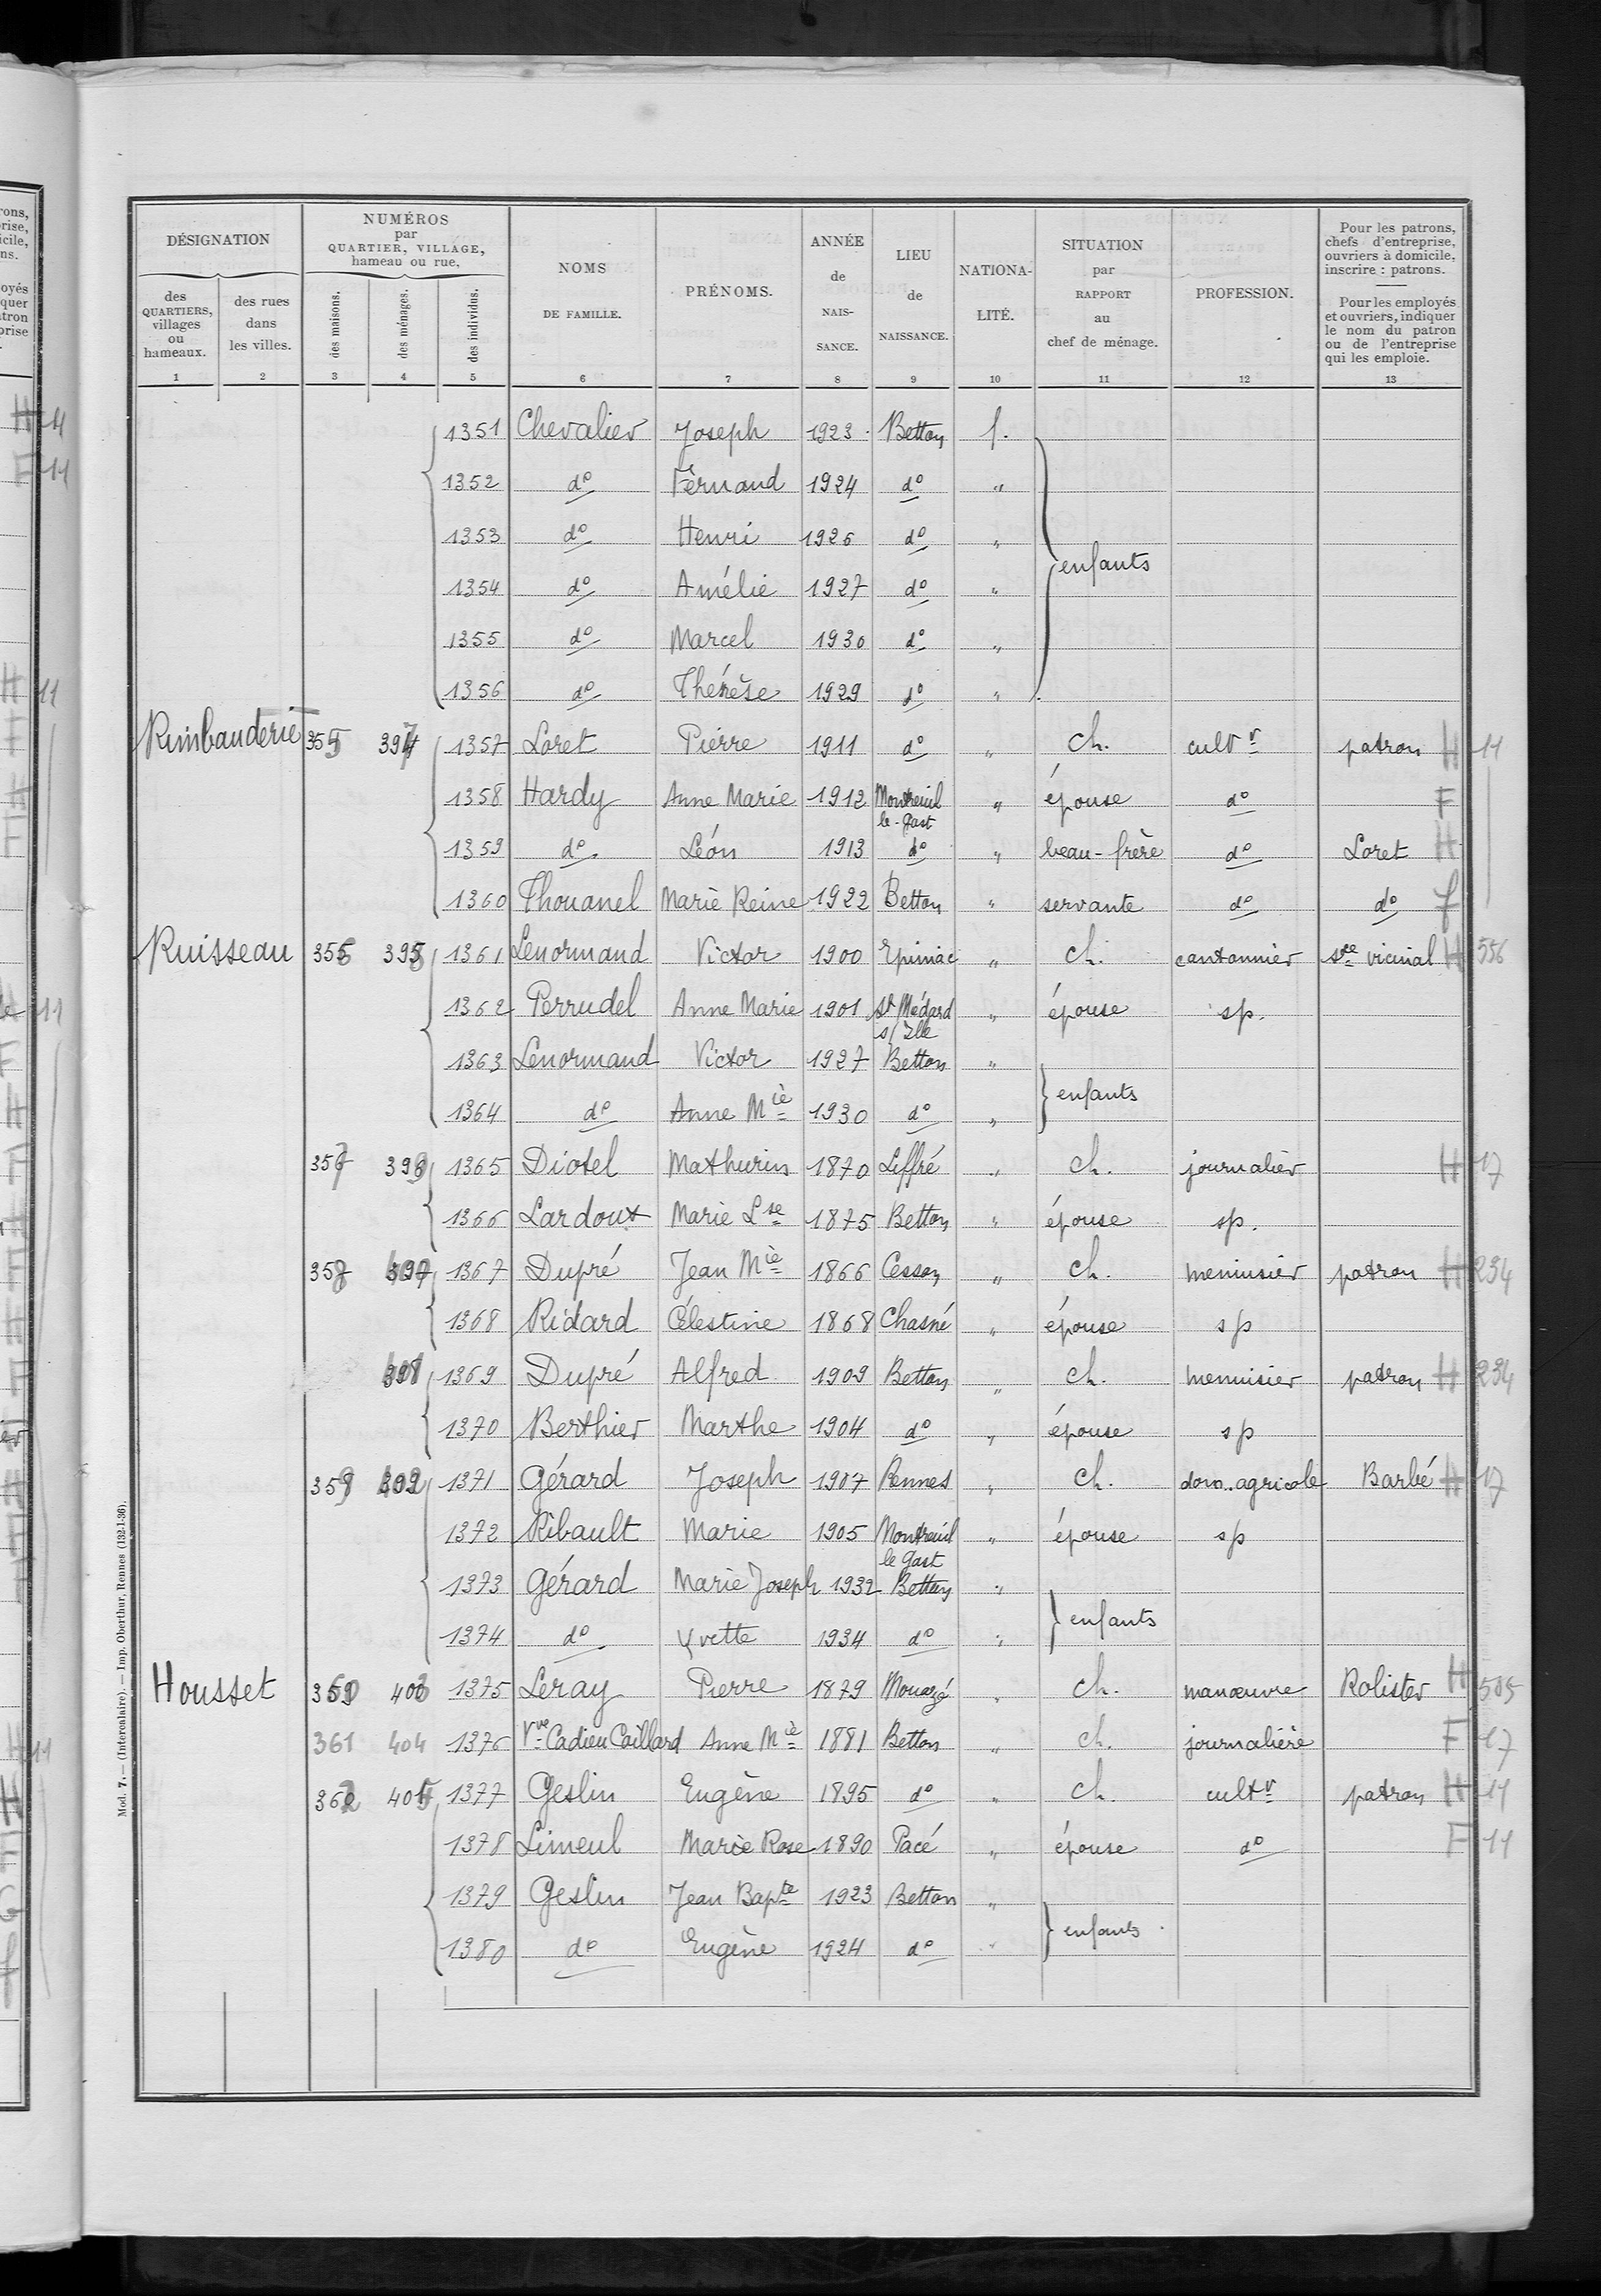 DÉSIGNATION
des QUARTIERS, villages ou hameaux.
des rues dans les villes.
NUMÉROS par QUARTIER, VILLAGE, hameau ou rue.
des maisons.
des ménages.
des individus.
NOMS DE FAMILLE.
PRÉNOMS.
ANNÉE de NAIS-SANCE.
LIEU de NAISSANCE.
NATIONA-LITÉ.
SITUATION par RAPPORT au chef de ménage.
PROFESSION.
Pour les patrons, chefs d'entreprise, ouvriers à domicile, inscrire : patrons.
Pour les employés et ouvriers, indiquer le nom du patron ou de l'entreprise qui les emploie.
1 2 3 4 5 6 7 8 9 10 11 12 13
1351 Chevalier Joseph 1923 Betton f.
1352 do Fernand 1924 do "
1353 do Henri 1926 do "
enfants
1354 do Amélie 1927 do "
1355 do Marcel 1930 do "
1356 do Thérèse 1929 do "
Rimbauderie 355 397 1357 Loret Pierre 1911 do " ch. cultr patron H 11
1358 Hardy Anne Marie 1912 Montreuil le-Gast " épouse do F
1359 do Léon 1913 do " beau-frère do Loret H
1360 Thouanel Marie Reine 1922 Betton " servante do do f
Ruisseau 356 398 1361 Lenormand Victor 1900 Epiniac " ch. cantonnier sce vicinal H 556
1362 Perrudel Anne Marie 1901 St Médard s/Ille " épouse sp.
1363 Lenormand Victor 1927 Betton "
enfants
1364 do Anne Mie 1930 do "
357 399 1365 Diotel Mathurin 1870 Liffré " ch. journalier H 17
1366 Lardoux Marie Lse 1875 Betton " épouse sp.
358 1367 Dupré Jean Mie 1866 Cesson " ch. menuisier patron H 234
1368 Ridard Célestine 1868 Chasné " épouse sp
1369 Dupré Alfred 1909 Betton " ch. menuisier patron H 234
1370 Berthier Marthe 1904 do " épouse sp
359 402 1371 Gérard Joseph 1907 Rennes " ch. dom. agricole Barbé H 17
1372 Ribault Marie 1905 Montreuil le Gast " épouse sp
1373 Gérard Marie Joseph 1932 Betton "
enfants
1374 do Yvette 1934 do "
Housset 360 403 1375 Leray Pierre 1879 Mouazé " ch. manœuvre Rolister H
361 404 1376 Vve Cadieu Caillard Anne Mie 1881 Betton " ch. journalière F 17
362 405 1377 Geslin Eugène 1895 do " ch. cultr patron H 11
1378 Limeul Marie Rose 1890 Pacé " épouse do F 11
1379 Geslin Jean Bapte 1923 Betton "
enfants
1380 do Eugène 1924 do "
Mod. 7. — (Intercalaire). — Imp. Oberthur, Rennes (132-1-36).